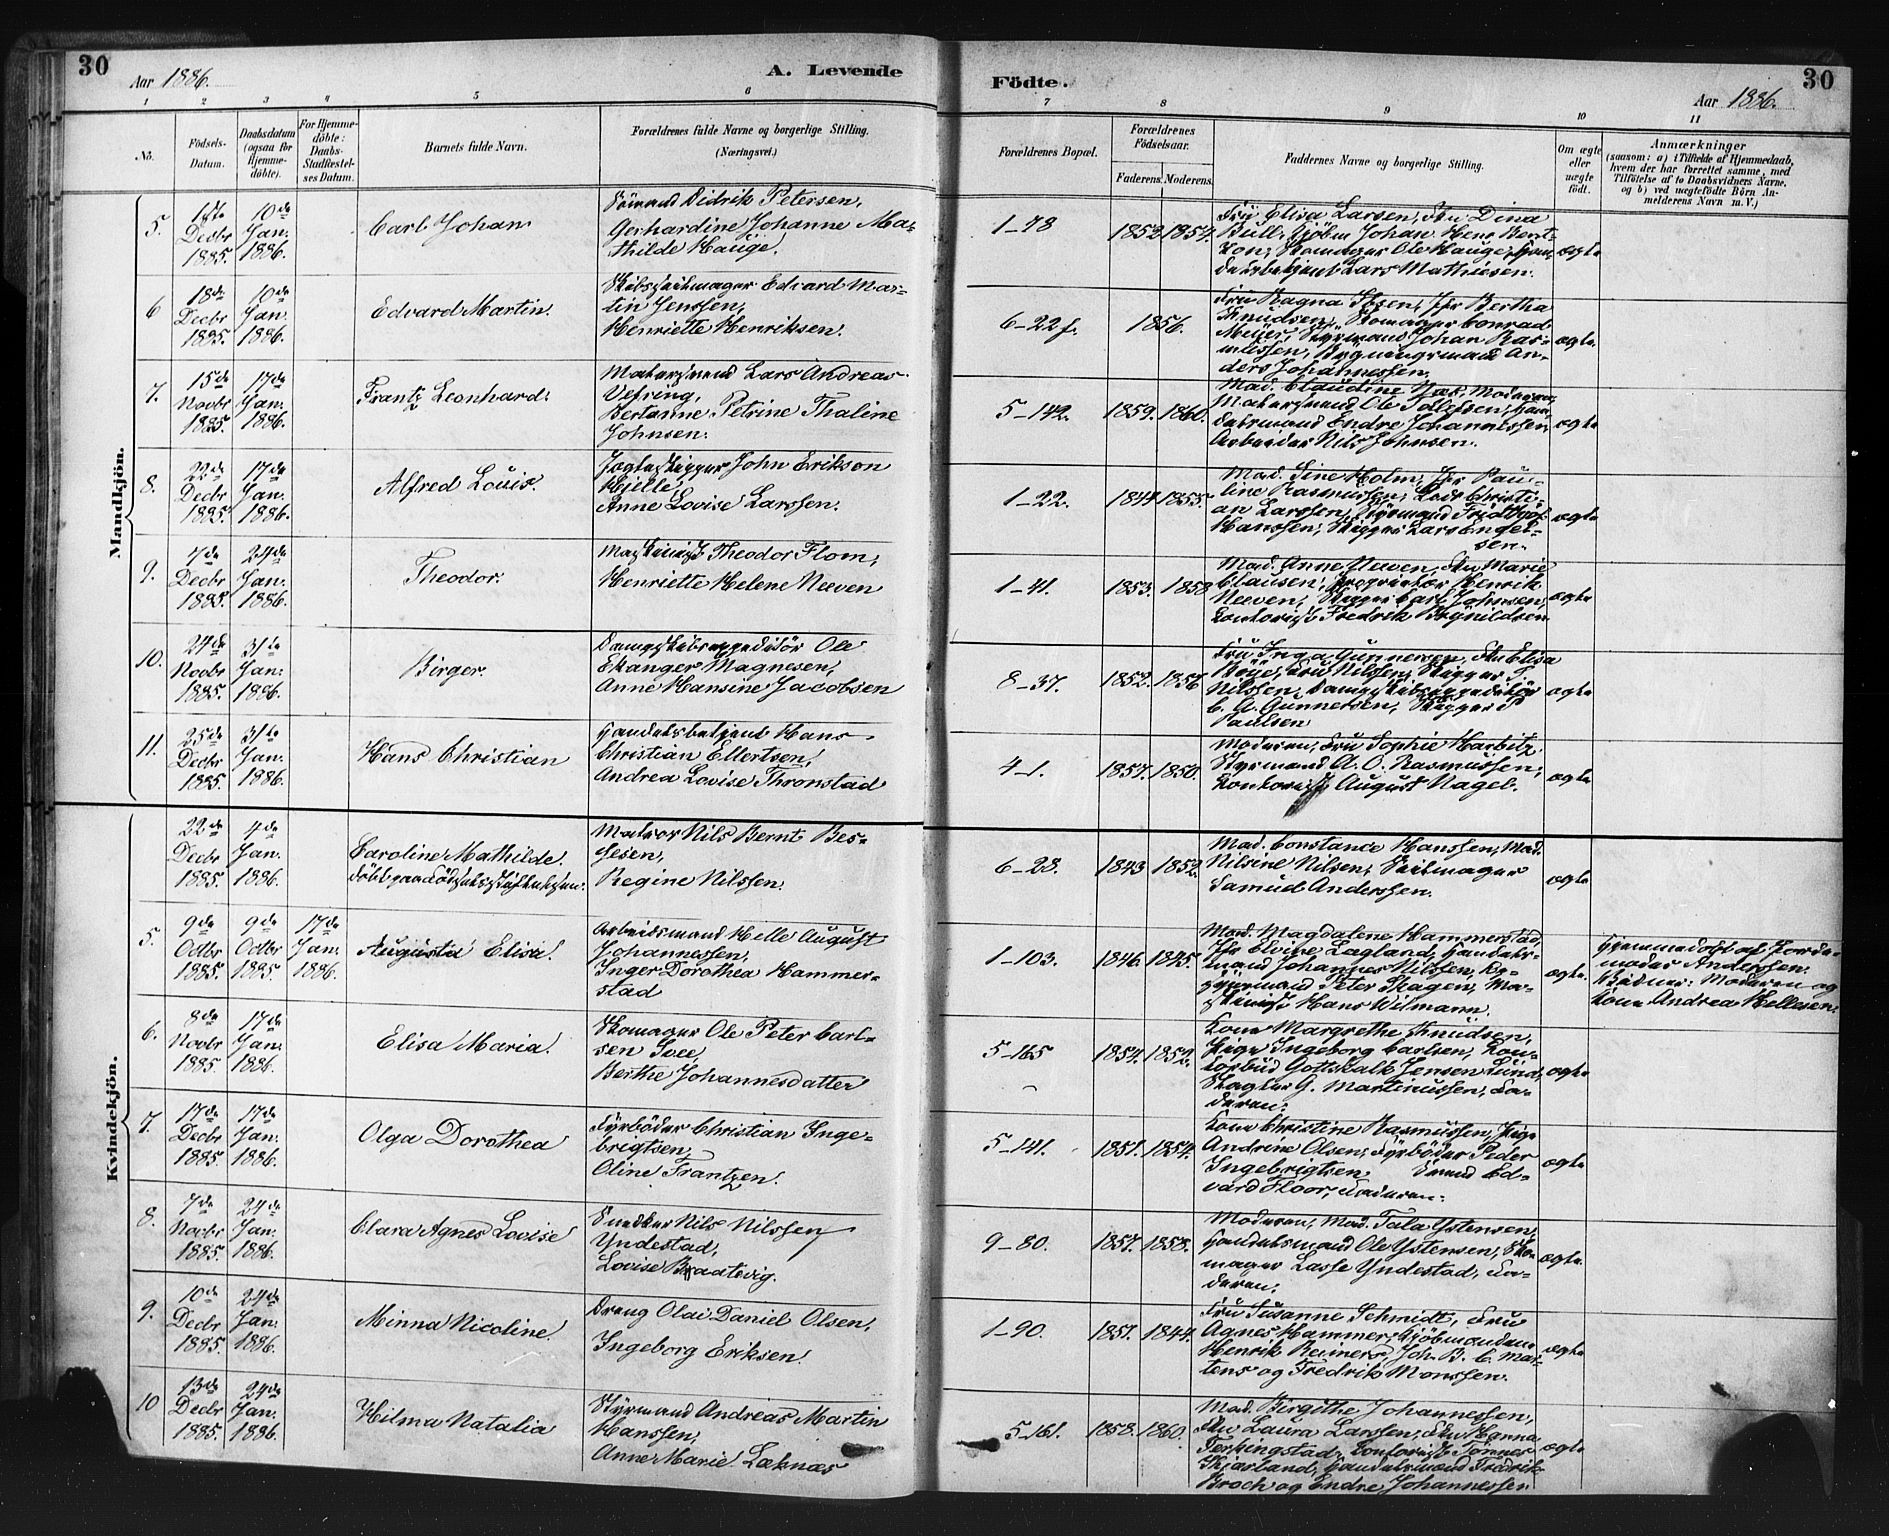 30
Aar 1886.
A. Levende
Födte.
Aar 1886.
30
1 2 3 4 5 6 7 8 9 10 11
No.
Födsels-Datum.
Daabsdatum (ogsaa for Hjemme-döbte).
For Hjemme-döbte: Daabs-Stadfæstel-ses Datum.
Barnets fulde Navn.
Forældrenes fulde Navne og borgerlige Stilling.
(Næringsvei.)
Forældrenes Bopæl.
Forældrenes Födselsaar.
Faderens. Moderens.
Faddernes Navne og borgerlige Stilling.
Om ægte eller uægte födt.
Anmærkninger
(saasom: a) i Tilfælde af Hjemmedaab, hvem der har forrettet samme, med Tilföielse af to Daabsvidners Navne, og b) ved uægtefödte Börn An-melderens Navn m. V.)
Mandkjön.
5. 17de Decbr 1885. 10de Jan. 1886. Carl Johan
Sömand Didrik Petersen,
Gerhardine Johanne Ma-
thilde Hauge.
1-78 1853 1854.
Fru Elisa Larsen, Fru Dina
Bull, Kjöbm Johan Henr. Bent-
zon, Skomager Ole Hauge, Han-
delsbetjent Lars Mathiesen.
ægte
6 18de Decbr 1885. 10de Jan. 1886. Edvard Martin.
Skibsseilmager Edvard Mar-
tin Jenssen,
Henriette Henriksen.
6-22f. 1856.
Fru Ragna Ibsen, Jfr Bertha
Knudsen, Skomager Conrad
Meijer, Styrmand Johan Ras-
mussen, Bygningsmand An-
ders Johannessen.
ægte
7. 15de Novbr 1885 17de Jan. 1886. Frantz Leonhard.
Matersmand Lars Andreas
Vefring,
Bertanne Petrine Thaline
Johnsen.
5-142. 1859. 1860.
Mad. Claudine Næs, Moderen,
Matersmand Ole Tolefsen, Han-
delsmand Endre Johannessen,
Arbeider Nils Johnsen.
ægte
8. 22de Decbr 1885. 17de Jan. 1886. Alfred Louis.
Jagteskipper John Erikson
Hjelle
Anne Lovise Larssen.
1-22. 1844 1855.
Mad. Sine Holm, Jfr Pau-
line Rasmussen, Lods Christi-
an Larssen, Styrmand Fridthjof
Hanssen, Skipper Lars Engel-
sen.
ægte
9. 7de Decbr 1885. 24de Jan. 1886. Theodor.
Maskinist Theodor Flom,
Henriette Helene Neeven
1-41. 1853. 1858
Mad. Anne Neeven, Fru Marie
Clausen, Proprietær Henrik
Neeven, Skipper Carl Johnsen,
Kontorist Fredrik Brynildsen
ægte
10. 24de Novbr 1885. 31te Jan: 1886. Birger.
Dampskibsexpeditör Ole
Ekanger Magnesen,
Anne Hansine Jacobsen
8-37. 1852. 1856
Fru Inga Gunnersen, Fru Elisa
Böye, Fru Nilssen, Skipper T.
Nilssen, Dampskibsexpeditör
C. A. Gunnersen, Skipper
Paulsen
ægte
11. 25de Decbr 1885. 31te Jan. 1886. Hans Christian
Handelsbetjent Hans
Christian Ellertsen,
Andrea Lovise Thronstad
4-1. 1857. 1850.
Moderen, Fru Sophie Harbitz,
Styrmand A. O. Rasmussen,
Kontorist August Nagel.
ægte
Kvindekjön.
22de Decbr 1885. 4de Jan. 1886. Caroline Mathilde.
Matros Nils Bernt Bes-
sesen,
Regine Nilssen.
6-28. 1843 1852.
Mad. Constance Hanssen, Mad.
Nilsine Nilsen, Seilmager
Samuel Anderssen.
ægte
5. 9de Octbr 1885. 9de Octbr 1885. 17de Jan. 1886. Augusta Elisa.
Arbeidsmand Helle August
Johannessen,
Inger Dorothea Hammer-
stad
1-103. 1846. 1845.
Mad. Magdalene Hammerstad,
Jfr Elvine Lagland, Handels-
mand Johannes Nilssen,
Peter Skagen, Ma-
skinist Hans Wilmann.
ægte.
Hjemmedöbt af Jorde-
moder Anderssen.
Vidner: Moderen og
Kone Andrea Hellesen.
6. 8de Novbr 1885. 17de Jan. 1886. Elisa Maria.
Skomager Ole Peter Carl-
sen Svee,
Berthe Johannesdatter
5-165 1854. 1852.
Kone Margrethe Knudsen,
Pige Ingeborg Carlsen, Kon-
torbud Gottskalk Jensen Lund,
Slagter G. Martinussen, Fa-
deren.
ægte
7. 17de Decbr 1885. 17de Jan. 1886. Olga Dorothea
Fyrböder Christian Inge-
brigtsen,
Oline Frantzen.
5-141. 1851. 1854.
Kone Christine Rasmussen, Pige
Andrine Olsen, Fyrböder Peder
Ingebrigtsen Svend Ed-
vard Floor, Faderen.
ægte
8. 7de Novbr 1885. 24de Jan. 1886. Clara Agnes Lovise
Snedker Nils Nilssen
Yndestad,
Lovise Braatvig.
9-80. 1857. 1858.
Moderen, Mad. Tala Ystensen,
Handelsmand Ole Ystensen, Sko-
mager Lasse Yndestad, Fa-
deren.
ægte
9. 10de Decbr 1885. 24de Jan. 1886. Minna Nicoline.
Dreng Olai Daniel Olsen,
Ingeborg Eriksen.
1-90. 1851. 1844.
Fru Susanne Schmidt, Fru
Agnes Hammer, Kjöbmændene
Henrik Reimers, Joh. B. C. Mar-
tens og Fredrik Monssen.
ægte
10 13de Decbr 1885. 24de Jan. 1886. Hilma Natalia
Styrmand Andreas Martin
Hanssen,
Anne Marie Løknæs
5-161. 1858. 1860.
Mad. Birgithe Johannessen,
Fru Laura Larssen, Fru Hanna
Terkingstad, Kontorist Tönnes
Kjorland, Handelsmænd Fredrik
Broch og Endre Johannessen
ægte